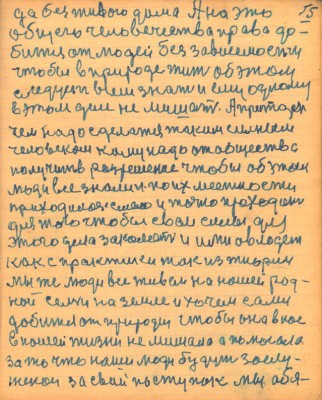 15
да без живого дома А на это
общего человечества права до-
биться от людей без зависемости
чтобы в природе жить об этом
следует всем знать и ему одному
в этом деле не мешать. А преждя
чем надо сделатся таким сильным
человеком кому надо от общества
получить разрешение чтобы об этом
люди все знали и по их местности
приходилось смело и тоже проходить
для того чтобы свои силы для
этого дела заколеть и ими овладеть
как с практики так из теории
мы же люди все живем на нашей род-
ной семи на земле и хочем сами
добится от природы чтобы она в нас
в нашей жизни не мешала а помогала
за то что наши люди будут заслу-
жены за свой поступок мы обя-